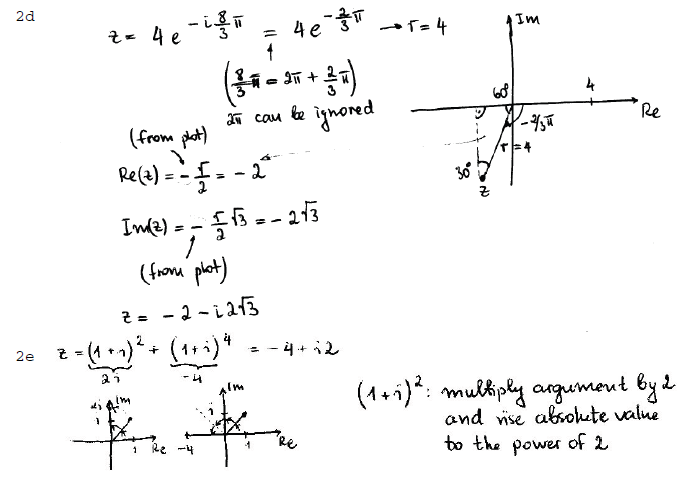 2d
z = 4 e^{-i 8/3 π} = 4 e^{-2/3 π} → r = 4
(8/3 π = 2π + 2/3 π)
2π can be ignored
(from plot)
Re(z) = - r/2 = - 2
Im(z) = - r/2 √3 = - 2√3
(from plot)
z = - 2 - i 2√3
Im
60°
4
Re
- 2/3 π
r = 4
30°
z
2e
z = (1+i)^2 + (1+i)^4 = - 4 + i2
2i
-4
2i Im
i
1 Re
Im
i
-4 1 Re
(1+i)^2: multiply argument by 2
and rise absolute value
to the power of 2